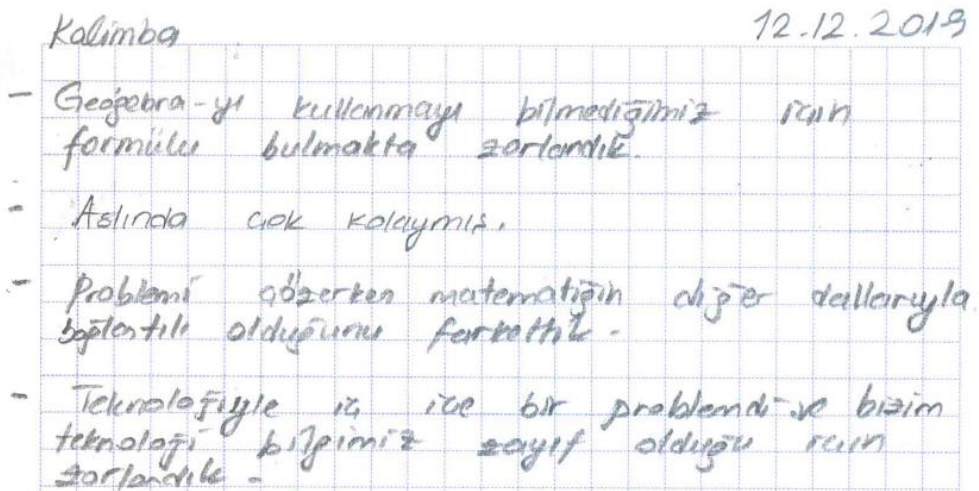 Kalimba 12.12.2019
- Geogebra-yı kullanmayı bilmediğimiz için
formülü bulmakta zorlandık.
- Aslında çok kolaymış.
- Problemi çözerken matematiğin diğer dallarıyla
bağlantılı olduğunu farkettik.
- Teknolojiyle iç içe bir problemdi ve bizim
teknoloji bilgimiz zayıf olduğu için
zorlandık.